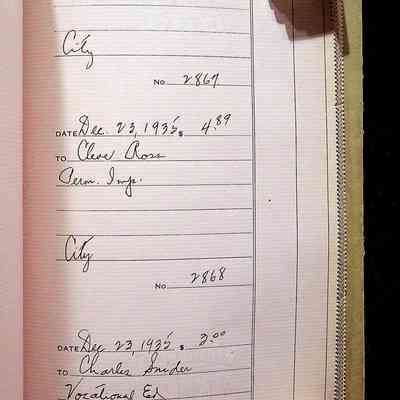 City
No 2867
DATE Dec. 23, 1935 $ 4.89
TO Cleve Ross
Perm. Imp.
City
No 2868
DATE Dec 23, 1935 $ 3.00
TO Charles Snider
Vocational Ed